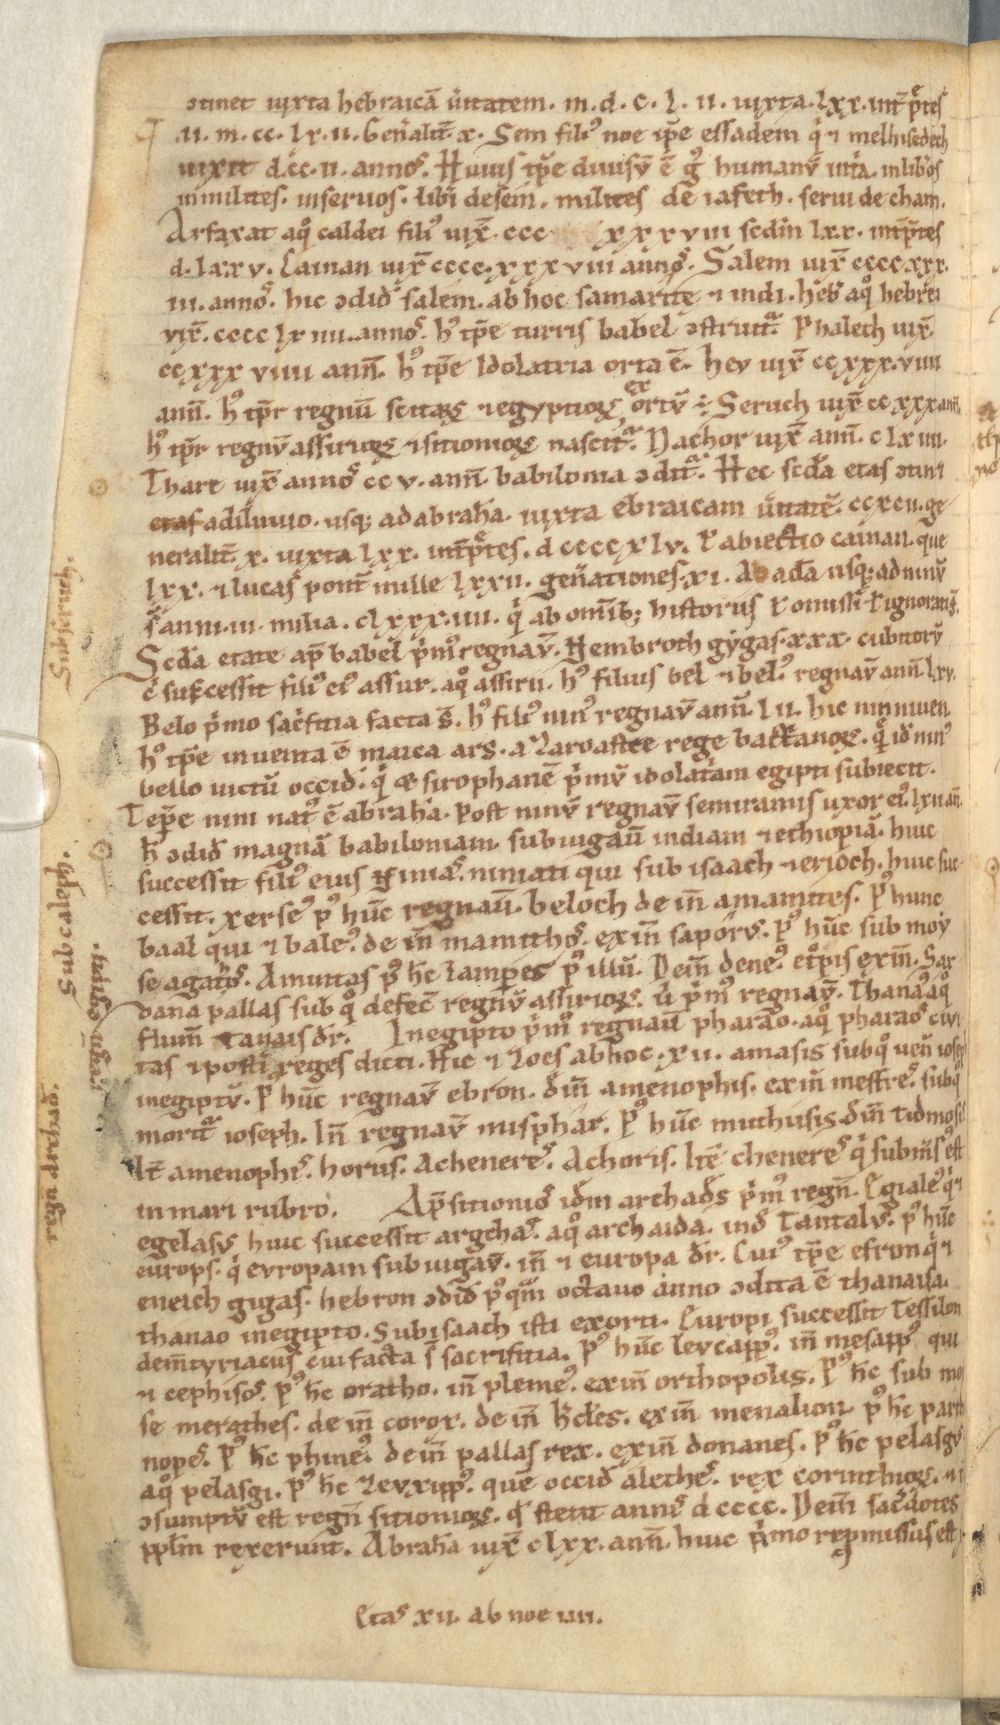 ↄtinet iuxta hebraicā ūitatem. m. d. c. l. ii. iuxta. lxx. int̄p̄tes
.ii. m. cc. lx. ii. Gen̄alit̄ x. Sem filiꝰ noe ip̄e est adem q̄ ⁊ melhisedech
uixit d. cc. ii. annoſ. Huius tp̄e diuisū ē gͥ humanū int̄a. in libōs
in milites. in seruos. Lib̄i de sem. milites de iafeth. serui de cham.
Arfaxat a qͦ caldei filiꝰ uix̄. ccc xxxviii scd̄m lxx. int̄p̄tes
d. lxxv. Cainan uix̄ cccc. xxxviii annoſ. Salem uix̄ cccc xxx.
iii. annoſ. hic ↄdid̄ salem. ab hoc samarite ⁊ indi. heb̄ a qͦ hebrei
vix̄. cccc lx iiii. annoſ. hͦ tp̄e turris babel ↄstruit̄. Phalech uix̄.
cc xxx viiii ann̄. hͦ tp̄e Idolatria orta ē. hev uix̄ cc xxx. viiii
ann̄. hͦ tp̄r regnū scitaꝝ ⁊ egyptioꝝ ex ortū ÷ Seruch uix̄ cc xxx ann̄.
hͦ tp̄r regnū assirioꝝ ⁊ sitionioꝝ nascit̄. Nachor uix̄ ann̄. c lx iiii.
Thare uix̄ annoſ cc v. ann̄ babilonia ↄdit̄. Hec scd̄a etas ↄtinet
etas a diluuio. usqꝫ ad abrahā. iuxta ebraicam ūitatē. cc xcii. ge
neralit̄. x. iuxta lxx. int̄p̄tes. d cccc xlv. P abiectio cainan. que
lxx. ⁊ lucas pont̄ mille lxxii. gen̄ationes. xi. Ab adā usqꝫ ad ninū
s̄ anni. iii. milia. clxxx. iiii. q̄ ab omībꝫ historiis
Scd̄a etate ap̄ babel p̄mꝰ regnav̄. Nembroth gygas. xxx. cubitorū
c̄ successit filiꝰ eiꝰ assur. a qͦ assirii. hꝰ filius bel ⁊ belꝰ. regnav̄ ann̄ lxv.
Belo p̄mo sac̄ficia facta s̄. hꝰ filiꝰ ninꝰ regnav̄ ann̄. lii. hic niniuen
hͦ tp̄e inuenta ē maica ars. a Naroastre rege bact̄anoꝝ. q̄ id̄ ninꝰ
bello uictū occid̄. q̄ sirophanē p̄mū idolat̄am egipti subiecit.
Tep̄e nini natꝰ ē abrahā. Post ninū regnav̄ semiramis uxor eiꝰ. lxii an̄.
h̄ ↄdid̄ magnā babiloniam. subiugav̄ indiam ⁊ ethiopiā. huic
successit filiꝰ eius Niniaſ. niniati qui sub isaach ⁊ erioch. huic suc
cessit. xerseꝰ pꝰ hūc regnav̄. beloch dein̄ amamites. Pꝰ hunc
baal qui ⁊ baleꝰ. dein̄ mamithoſ. exin̄ saporus. Pꝰ hūc sub moy
se agat̄oſ. Amintas pꝰ h̄c lampares pꝰ illū. Dein̄ deneꝰ. exin̄. Sar
dana pallas sub qͦ defec̄ regnū assirioꝝ. ū p̄mꝰ regnav̄. Thanaꝰ a qͦ
flum̄ Tanais dr̄. In egipto p̄mꝰ regnav̄ pharao. a qͦ pharaoꝰ civi
tas ⁊ post̄i reges dicti. Hic ⁊ Zoes ab hoc. xii. amasis sub qͦ uen̄ iosep
in egiptū. P hūc regnav̄ ebron. dīn amenophis. exin̄ mesfreꝰ. sub q̄
morit̄ ioseph. In̄ regnav̄ misphar. Pꝰ hūc mithusis. dīn tidmosiſ
It̄ amenophiſ. horus. Achenereſ. Achoris. Itē chenereſ q̄ subm̄sꝰ est
in mari rubro. Ap̄ sitionioſ id̄m archad̄s p̄mꝰ regn̄. Egialeꝰ q̄ ⁊
egelasꝰ huic successit argehaſ. a qͦ archaida. ind̄ Tantalꝰ. pꝰ hūc
europs. q̄ evropam subiugav̄. in̄ ⁊ europa dr̄. Cuiꝰ tp̄e efron q̄ ⁊
eneich gigas. hebron ↄdid̄ pꝰ q̄m octauo anno ↄdita ē thanaisa.
thanao in egipto. Sub isaach isti exorti. Europi successit Tessilon
dem̄ tyriacus cui facta s̄ sacrificia. Pꝰ hūc leucappꝰ. in̄ mesappꝰ qui
⁊ cephisoſ. Pꝰ h̄c oratho. in̄ plemeꝰ. exin̄ orthopolis. Pꝰ h̄c sub mo
se merathes. dein̄ corox. dein̄ h̄cles. exin̄ menalion. pꝰ h̄c part
nopeſ. Pꝰ h̄c phineꝰ. dein̄ pallas rex. exin̄ donanes. Pꝰ h̄c pelasgꝰ
a qͦ pelasgi. Pꝰ h̄c Zevxippꝰ. quē occid̄ aletheſ. rex corinthioꝝ.
ↄsumptū est regn̄ sitionioꝝ. qͩ stetit annis d cccc. Dein̄ sac̄dotes
ppl̄m rexerunt. Abrahā uix̄ clxx. ann̄. huic p̄mo repmissus est
Etaſ xii. ab noe iiii.
Sub seruch.
Sub caleph.